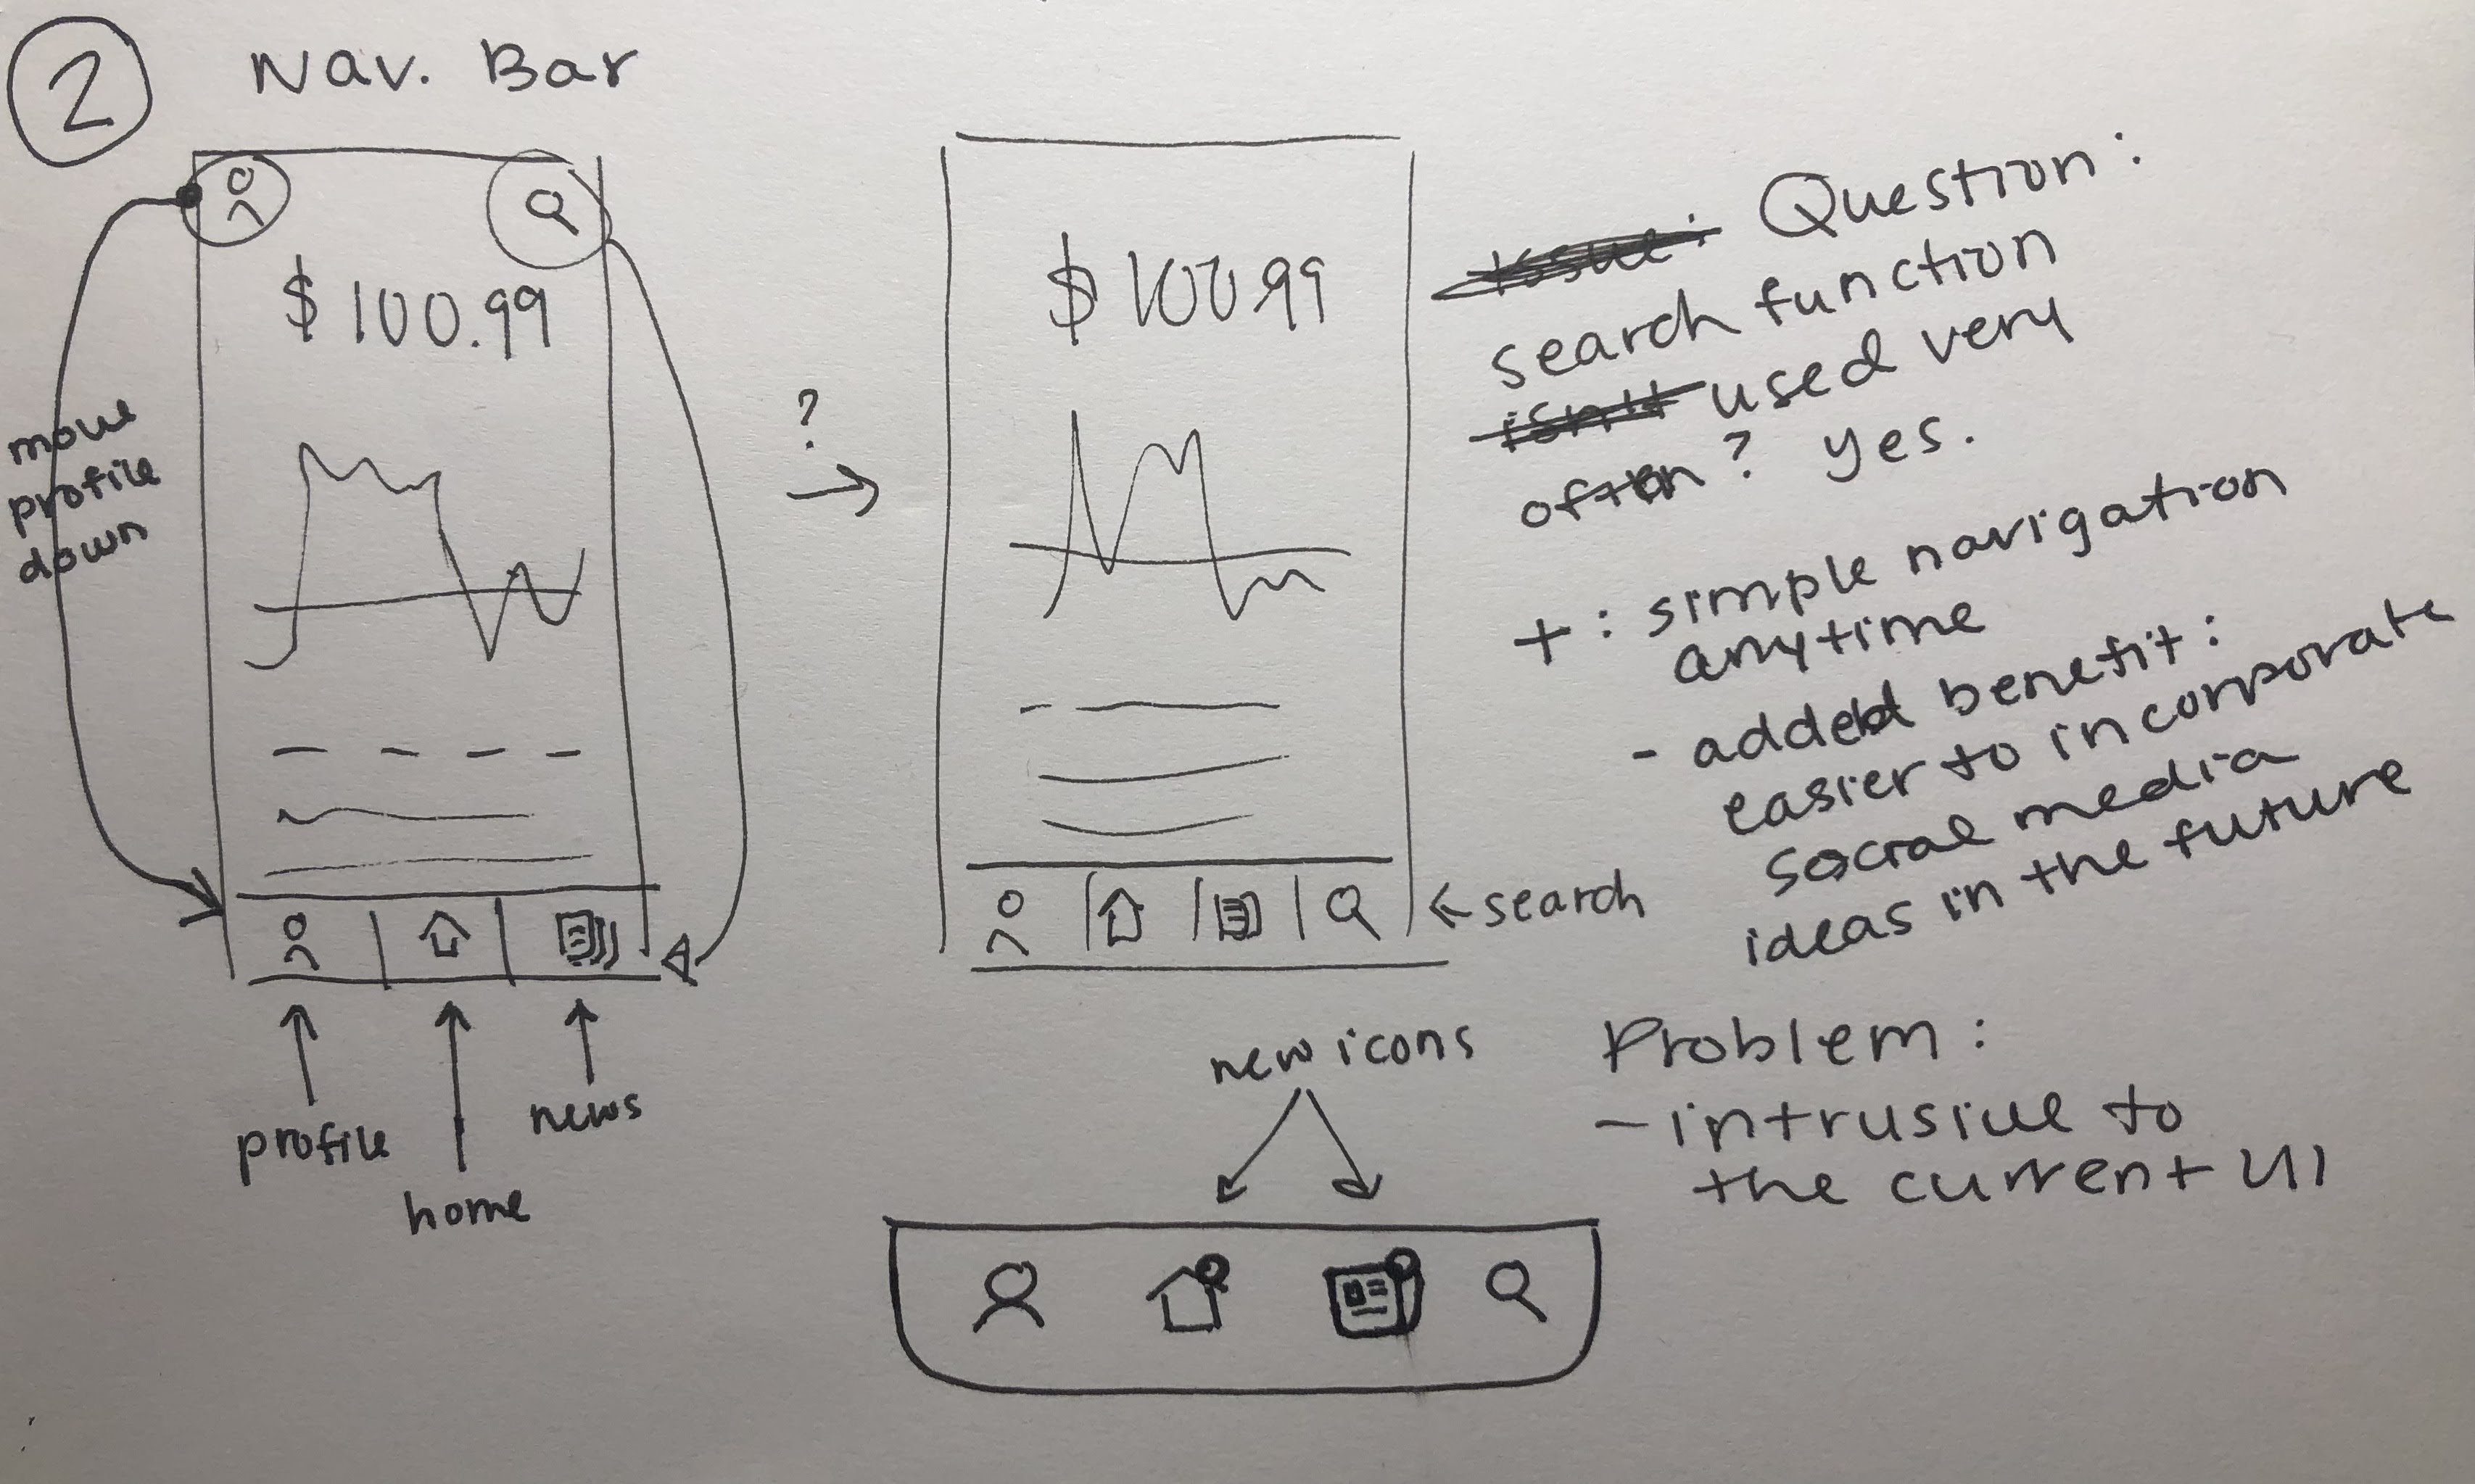 2
Nav. Bar
$100.99
move
profile
down
profile
home
news
?
$100.99
← search
new icons
Issue: Question:
search function
isn't used very
often? yes.
+: simple navigation
anytime
- added benefit:
easier to incorporate
social media
ideas in the future
Problem:
- intrusive to
the current UI